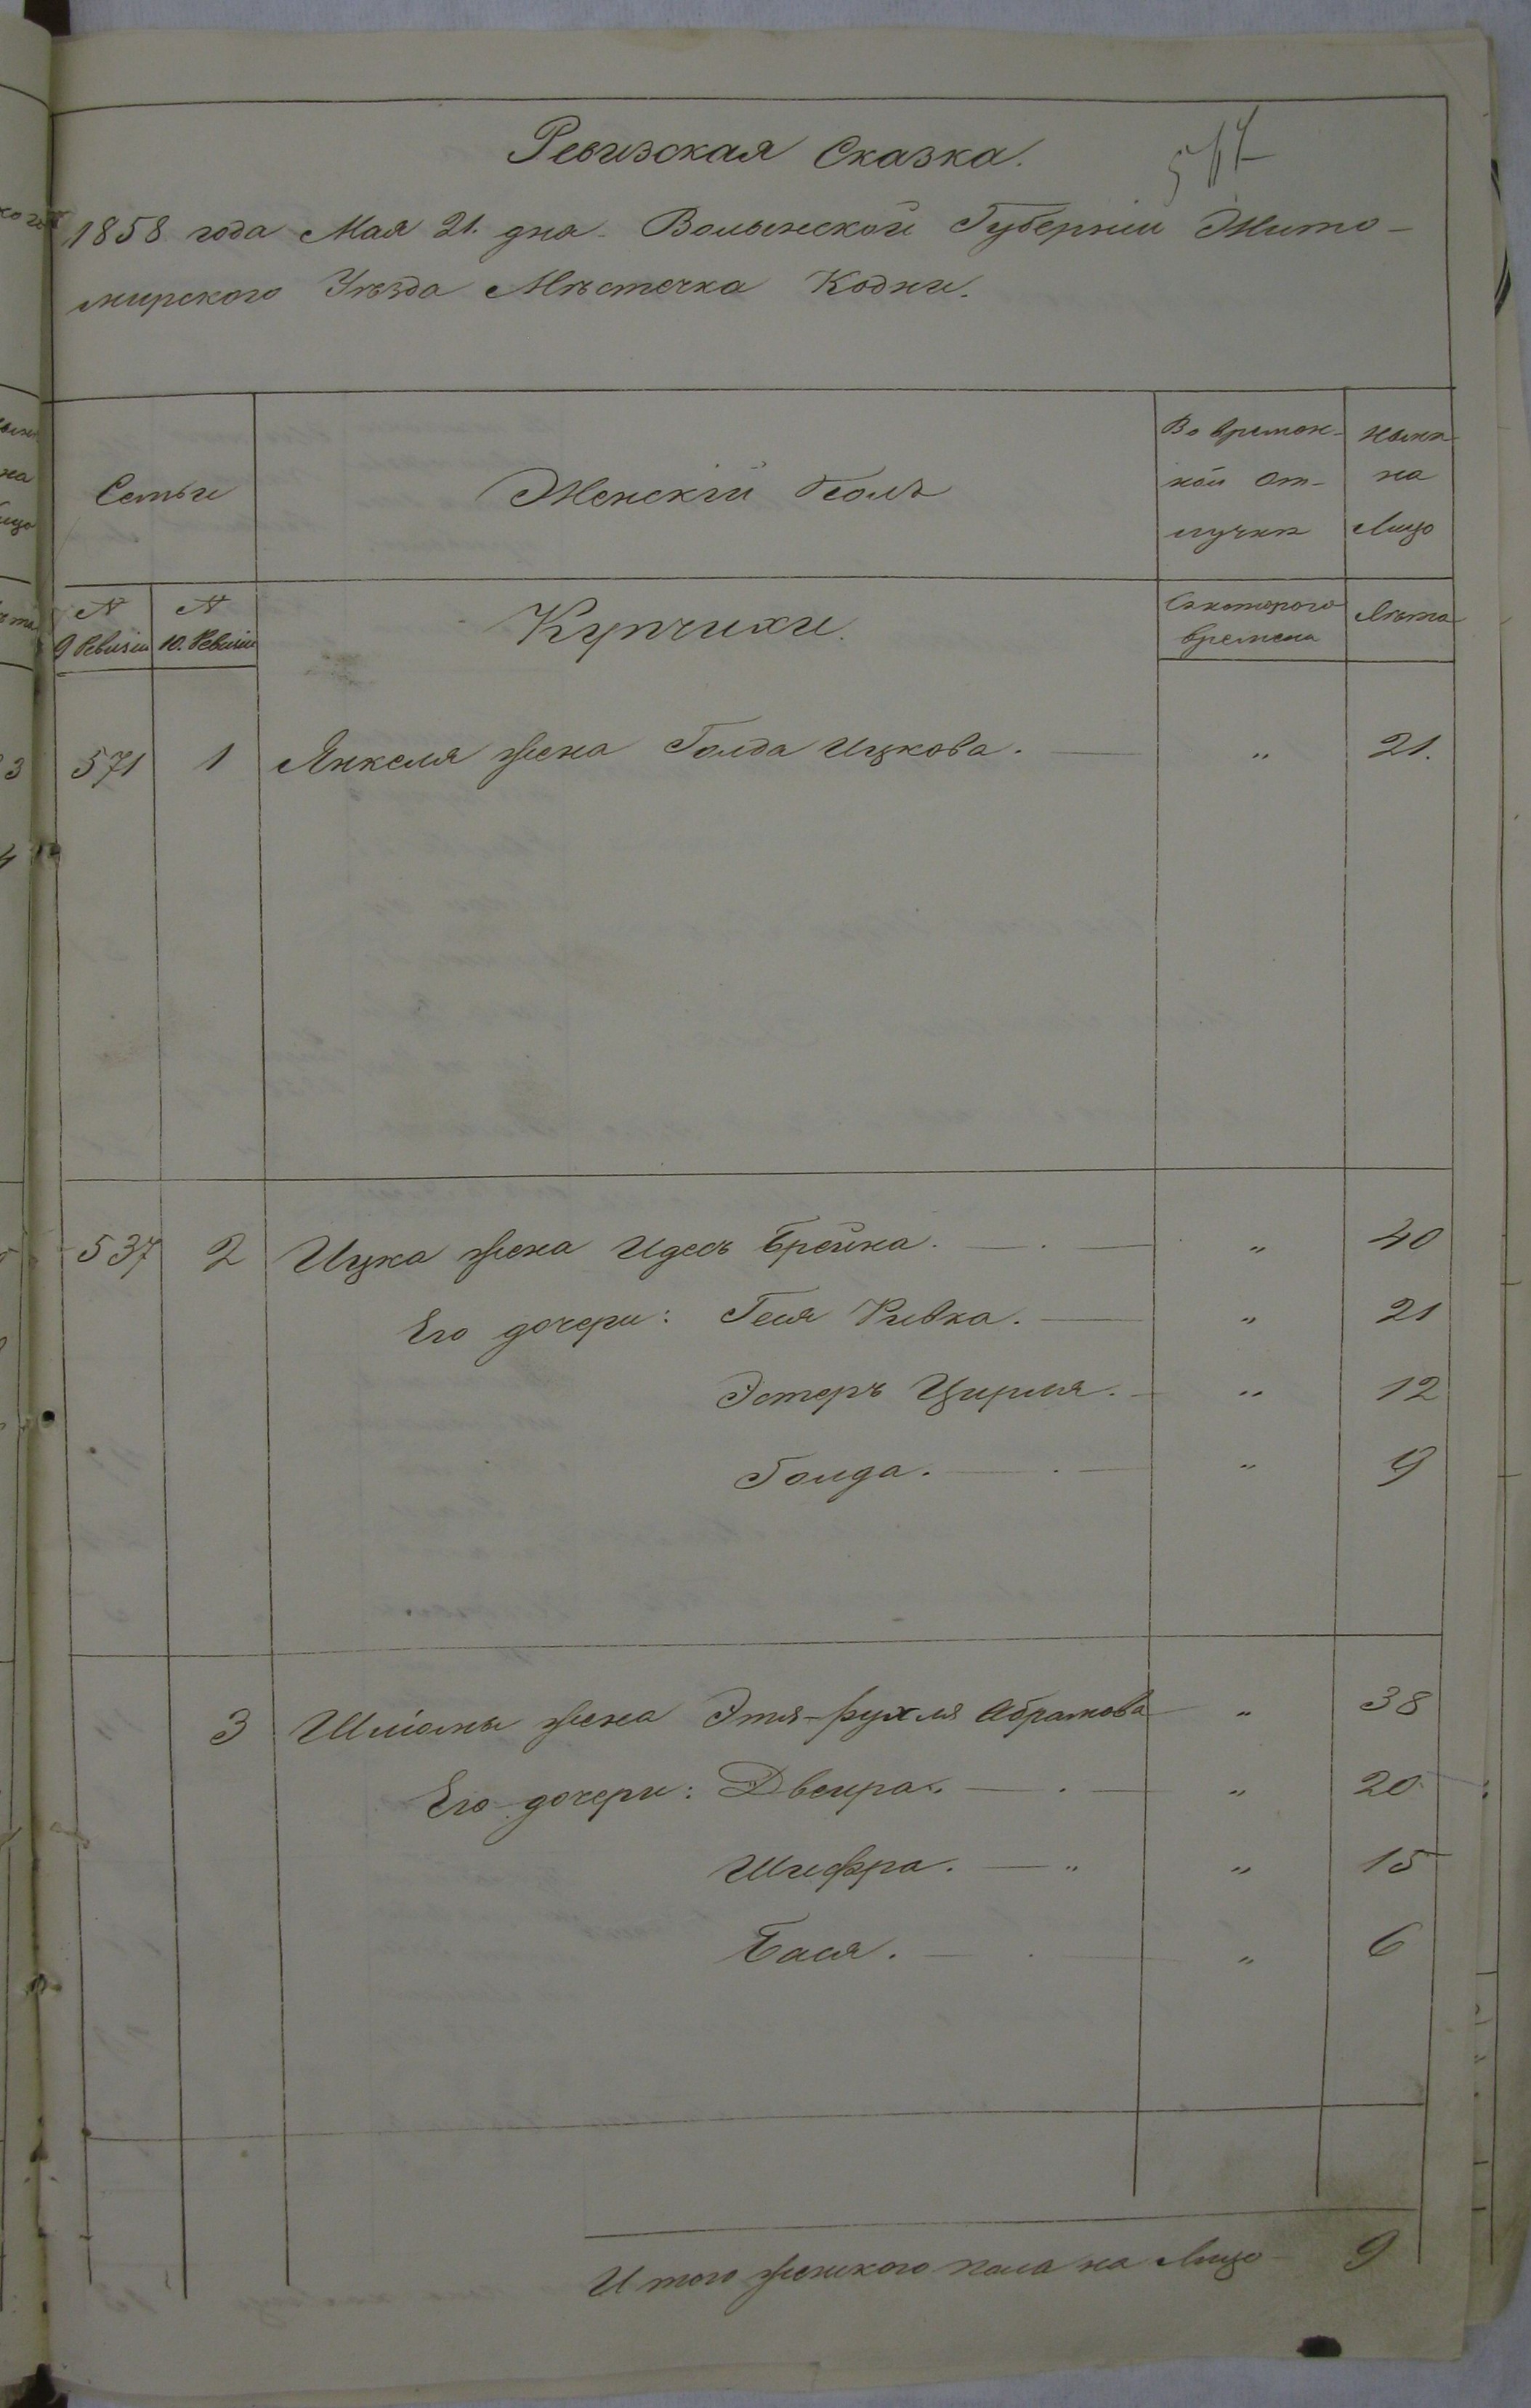 Ревизская Сказка.
1858 года Мая 21. дня Волынской Губерніи Жито-
мирского Уѣзда Мѣстечка Кодни.
Семьи
Женскій Полъ
Во времян-
ной от-
лучкѣ
Нынѣ
на
Лицо
N
9 Ревизіи
N
10. Ревизіи
Купчихи.
Съ которого
времени
Лѣта
571 1 Янкеля жена Голда Ицкова. " 21.
537 2 Ицка жена Идесъ Брейна. " 40
Его дочери: Геся Ривка. " 21
Эстеръ Цирля. " 12
Голда. " 9
3 Шліомы жена Этя-Рухля Абрамова " 38
Его дочери: Двейра. " 20
Шифра. " " 15
Бася. " 6
Итого женского пола на Лицо 9